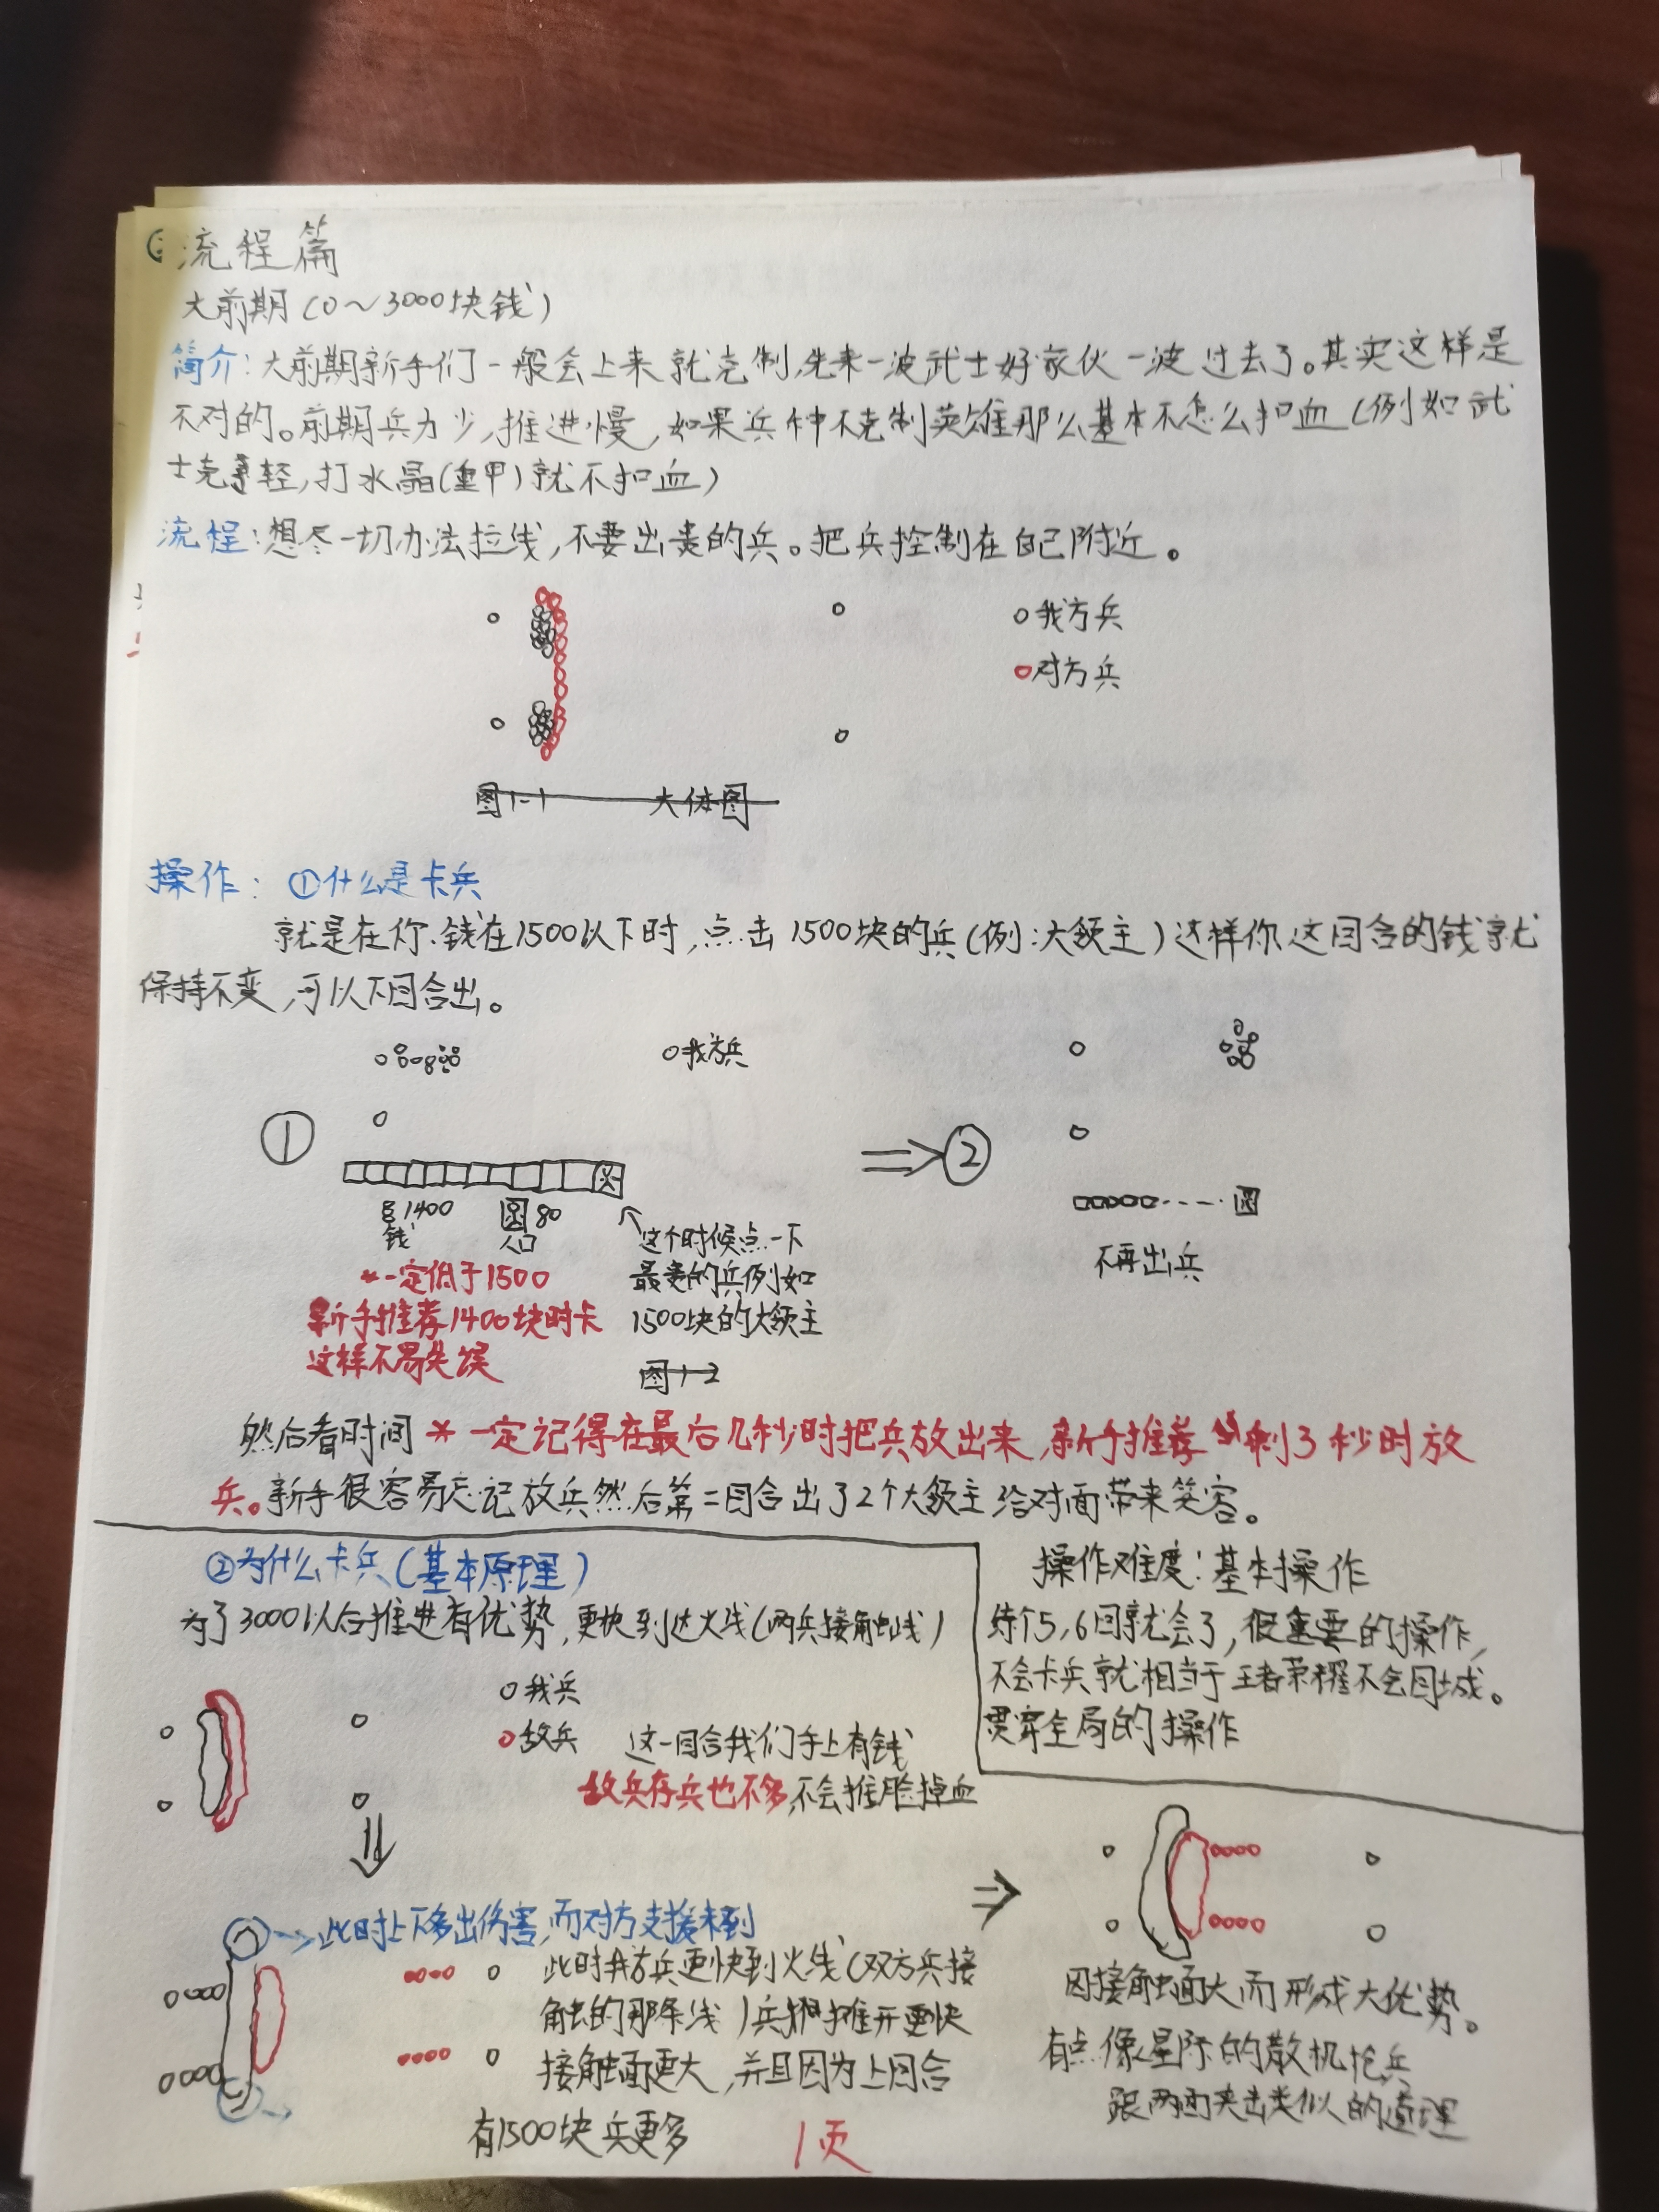 流程篇
大前期(0~3000块钱)
简介:大前期新手们一般会上来就克制,先来一波武士好家伙一波过去了。其实这样是
不对的。前期兵力少,推进慢,如果兵种不克制英雄那么基本不怎么扣血(例如武
士克轻,打水晶(重甲)就不扣血)
流程:想尽一切办法拉线,不要出贵的兵。把兵控制在自己附近。
我方兵
对方兵
图1-1 大体图
操作: ①什么是卡兵
就是在你钱在1500以下时,点击1500块的兵(例:大领主)这样你这回合的钱就
保持不变,可以下回合出。
我方兵
①
⇒②
1400
钱
80
人口
这个时候点一下
最贵的兵例如
1500块的大领主
*一定低于1500
新手推荐1400块时卡
这样不易失误
图1-2
不再出兵
然后看时间*一定记得在最后几秒时把兵放出来,新手推荐剩3秒时放
兵。新手很容易忘记放兵然后第二回合出了2个大领主给对面带来笑容。
②为什么卡兵(基本原理)
为了3000以后推进有优势,更快到达火线(两兵接触线)
我兵
敌兵
这一回合我们手上有钱
敌兵存兵也不多,不会推脸掉血
操作难度:基本操作
练个5,6回就会了,很重要的操作,
不会卡兵就相当于王者荣耀不会回城。
贯穿全局的操作
此时上下多出伤害,而对方支援未到
此时我方兵更快到火线(双方兵接
触的那条线)兵摊开更快
接触面更大,并且因为上回合
有1500块兵更多
因接触面大而形成大优势。
有点像星际的散机枪兵
跟两面夹击类似的道理
1页